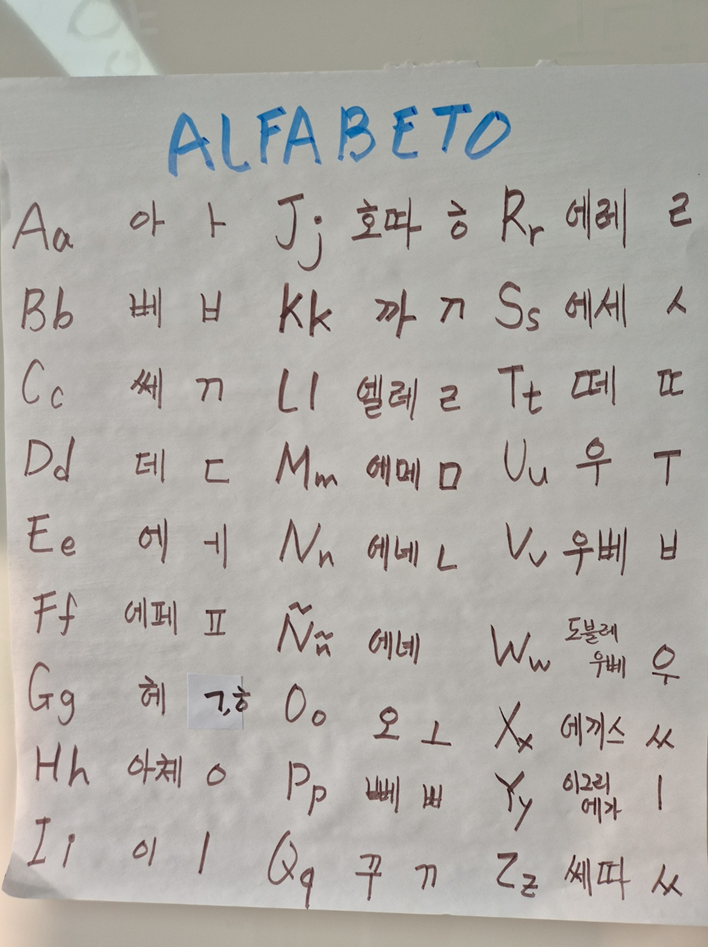 ALFABETO
Aa 아 ㅏ
Bb 베 ㅂ
Cc 쎄 ㄲ
Dd 데 ㄷ
Ee 에 ㅔ
Ff 에페 ㅍ
Gg 헤 ㄱ,ㅎ
Hh 아체 ㅇ
Ii 이 ㅣ
Jj 호따 ㅎ
Kk 까 ㄲ
Ll 엘레 ㄹ
Mm 에메 ㅁ
Nn 에네 ㄴ
Ññ 에녜
Oo 오 ㅗ
Pp 뻬 ㅃ
Qq 꾸 ㄲ
Rr 에레 ㄹ
Ss 에세 ㅅ
Tt 떼 ㄸ
Uu 우 ㅜ
Vv 우베 ㅂ
Ww 도블레 우베 우
Xx 에끼스 ㅆ
Yy 이그리에가 ㅣ
Zz 쎄따 ㅆ